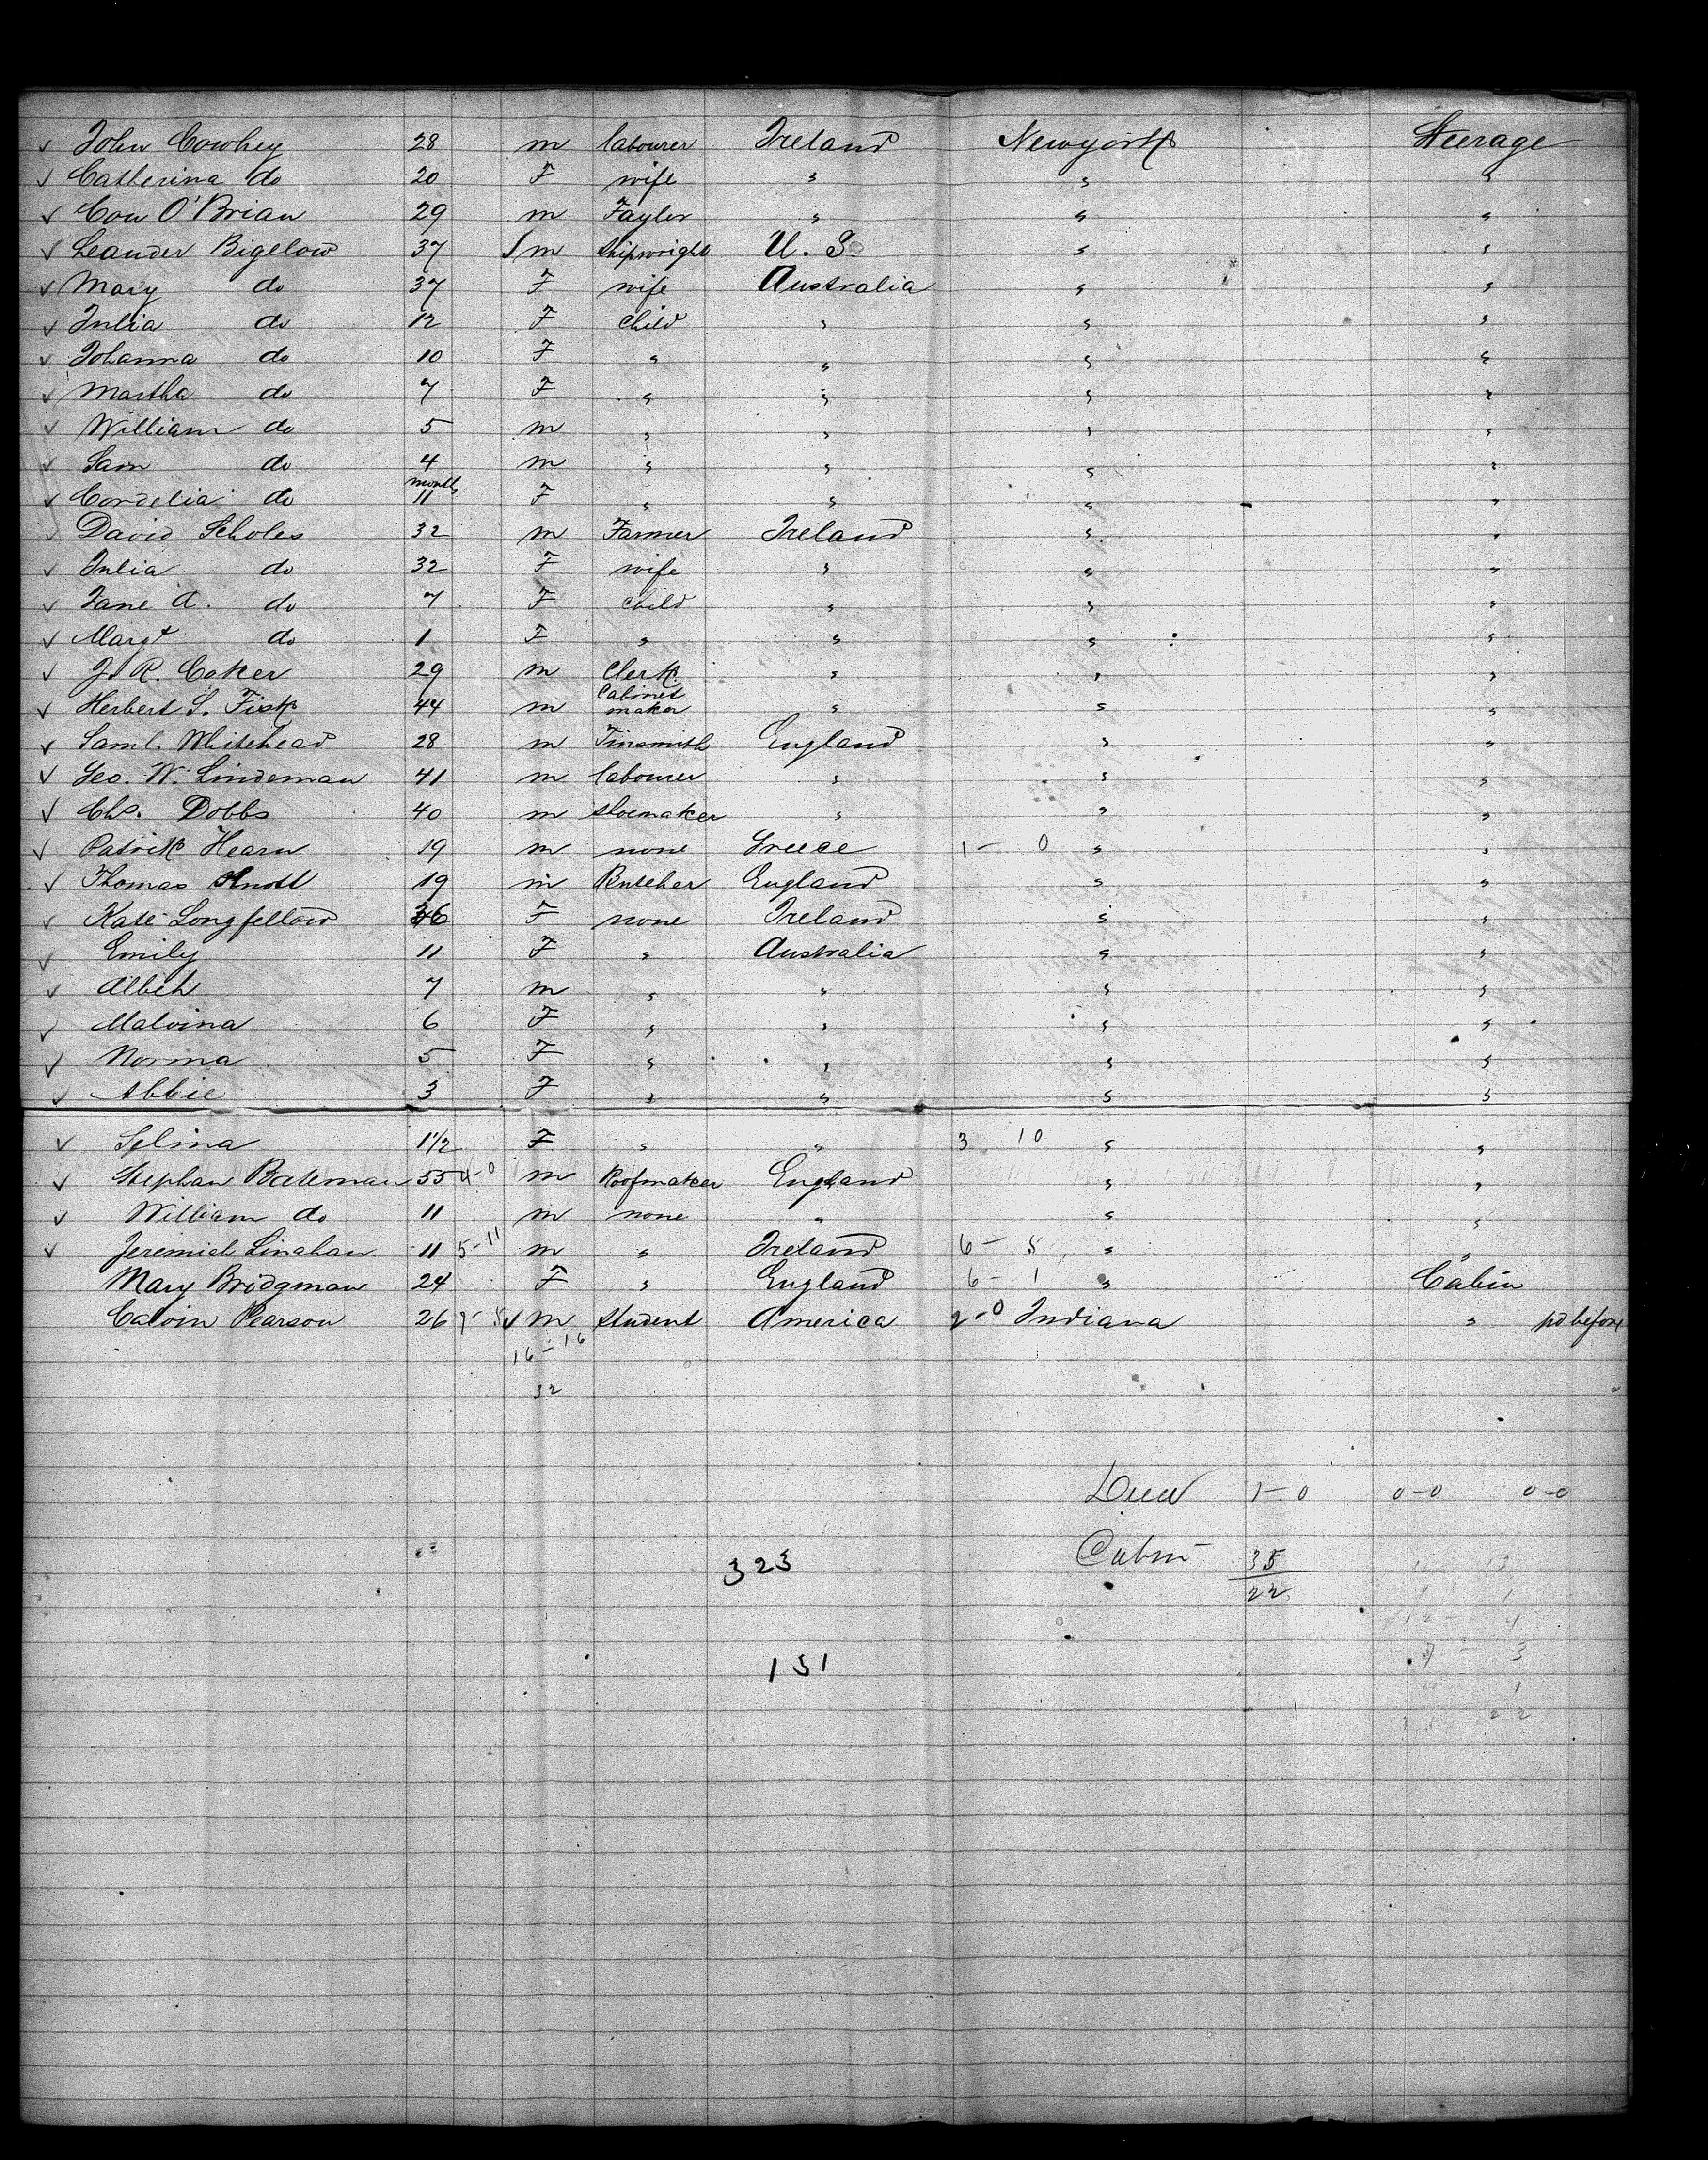 ✓ John Cowhey 28 m labourer Ireland Newyork Steerage
✓ Catherina do 20 F wife " " "
✓ Con O'Brian 29 m Taylor " " "
✓ Leander Bigelow 37 m Shipwright U. S. " "
✓ Mary do 37 F wife Australia " "
✓ Julia do 12 F Child " " "
✓ Johanna do 10 F " " " "
✓ Martha do 7 F " " " "
✓ William do 5 m " " " "
✓ Sam do 4 m " " " "
✓ Cordelia do months 11 F " " " "
✓ David Scholes 32 m Farmer Ireland " "
✓ Julia do 32 F wife " " "
✓ Jane A. do 7 F Child " " "
✓ Margt do 1 F " " " "
✓ J. R. Coker 29 m Clerk " " "
✓ Herbert S. Fisk 44 m Cabinet maker " " "
✓ Saml. Whitehead 28 m Tinsmith England " "
✓ Geo. W. Lindeman 41 m labourer " " "
✓ Chs. Dobbs 40 m shoemaker " " "
✓ Patrik Hearn 19 m none Greece 1 - 0 " "
✓ Thomas Knott 19 m Butcher England " "
✓ Kate Longfellow 36 F none Ireland " "
✓ Emily 11 F " Australia " "
✓ 7 m " " " "
✓ Malvina 6 F " " " "
✓ Norma 5 F " " " "
✓ Abbie 3 F " " " "
✓ Selina 1 1/2 F " " 3 10 " "
✓ Stephan Bateman 55 4-0 m Roofmaker England " "
✓ William do 11 m none " " "
✓ Jeremiah Linahan 11 5-11 m " Ireland 6 - 5 " "
Mary Bridgman 24 F " England 6 - 1 " Cabin
Calvin Pearson 26 ✓ m Student America 2-0 Indiana " pd before
16 - 16
32
1-0 0-0 0-0
323 Cabin 35
22
151